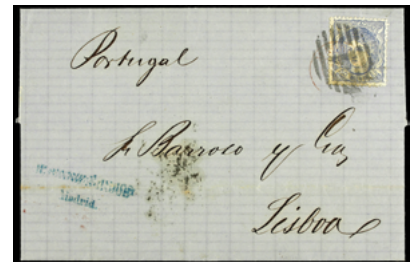 Portugal
Barroso y Cia
Lisboa
Madrid.